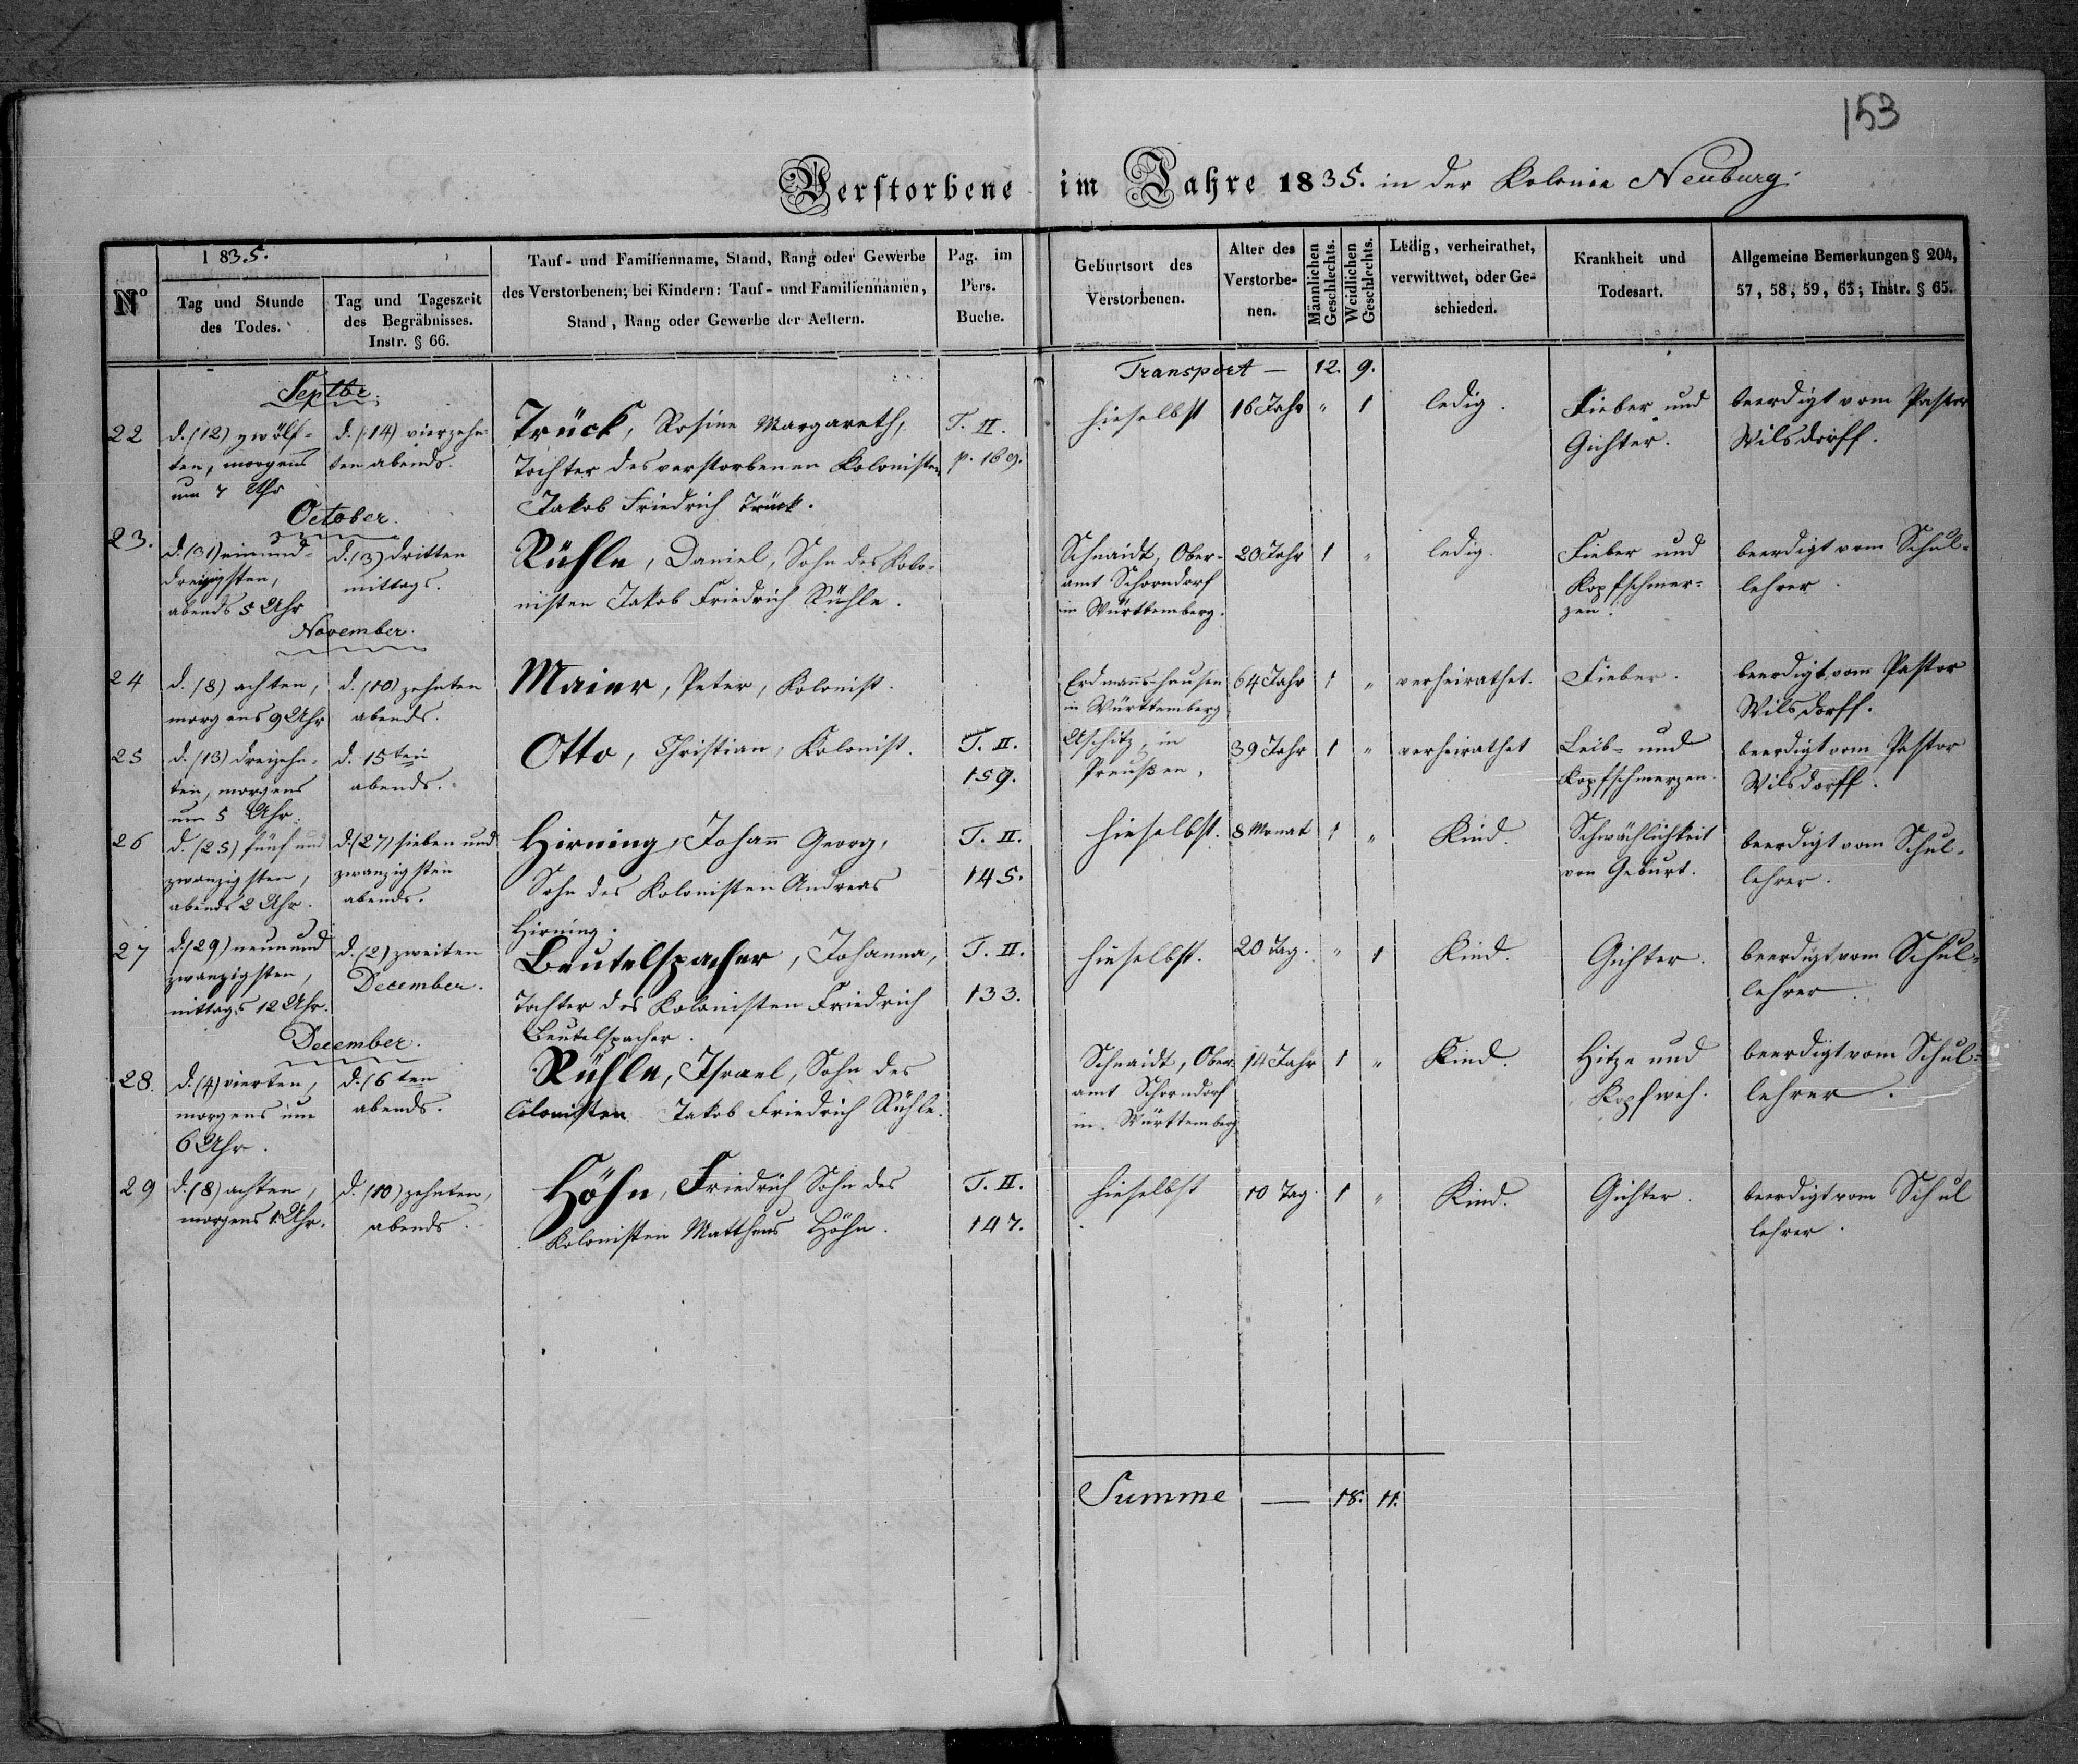 153
Verstorbene im Jahre 1835. in der Kolonie Neuburg.
No
1835.
Tag und Stunde
des Todes.
Tag und Tageszeit
des Begräbnisses.
Instr. § 66.
Tauf- und Familienname, Stand, Rang oder Gewerbe
des Verstorbenen; bei Kindern: Tauf- und Familiennamen,
Stand, Rang oder Gewerbe der Aeltern.
Pag. im
Pers.
Buche.
Geburtsort des
Verstorbenen.
Alter des
Verstorbe-
nen.
Männlichen
Geschlechts.
Weidlichen
Geschlechts.
Ledig, verheirathet,
verwittwet, oder Ge-
schieden.
Krankheit und
Todesart.
Allgemeine Bemerkungen § 204,
57, 58, 59, 63; Instr. § 65.
Transport — 12. 9.
Septbr.
22
d. (12) zwölf-
ten, morgens
um 7 Uhr
d. (14) vierzehn-
ten abends.
Trück, Rosine Margareth,
Tochter des verstorbenen Kolonisten
Jakob Friedrich Trück.
T. II.
p. 169.
hieselbst
16 Jahr
" 1
ledig.
Fieber und
Gichter.
beerdigt vom Pastor
Wilsdorff.
October.
23.
d. (31) einund-
dreizigsten,
abends 5 Uhr
d. (3) dritten
mittags.
Rühle, Daniel, Sohn des Kolo-
nisten Jakob Friedrich Rühle.
Schnaidt, Ober-
amt Schorndorf
in Württemberg.
20 Jahr
1 "
ledig.
Fieber und
Kopfschmer-
zen.
beerdigt vom Schul-
lehrer.
November.
24
d. (8) achten,
morgens 9 Uhr
d. (10) zehnten
abends.
Maier, Peter, Kolonist.
Erdmannshausen
in Württemberg
64 Jahr
1 "
verheirathet.
Fieber.
beerdigt vom Pastor
Wilsdorff.
25
d. (13) dreizehn-
ten, morgens
um 5 Uhr.
d. 15ten
abends.
Otto, Christian, Kolonist.
T. II.
159.
Uschitz in
Preußen,
39 Jahr
1 "
verheirathet
Leib- und
Kopfschmerzen.
beerdigt vom Pastor
Wilsdorff.
26
d. (25) fünf und
zwanzigsten,
abends 2 Uhr.
d. (27) sieben und
zwanzigsten
abends.
Hirning, Johann Georg,
Sohn des Kolonisten Andreas
Hirning.
T. II.
145.
hieselbst.
8 Monat
1 "
Kind.
Schwächlichkeit
von Geburt.
beerdigt vom Schul-
lehrer.
27
d. (29) neunund
zwanzigsten,
mittags 12 Uhr.
d. (2) zweiten
December.
Beutelspacher, Johanna,
Tochter des Kolonisten Friedrich
Beutelspacher.
T. II.
133.
hieselbst.
20 Tag.
" 1
Kind.
Gichter.
beerdigt vom Schul-
lehrer.
December.
28.
d. (4) vierten,
morgens um
6 Uhr.
d. (6ten
abends.
Rühle, Israel, Sohn des
Colonisten Jakob Friedrich Rühle.
Schnaidt, Ober-
amt Schorndorf
in Württemberg
14 Jahr
1 "
Kind.
Hitze und
Kopfweh.
beerdigt vom Schul-
lehrer.
29
d. (8) achten,
morgens 1 Uhr.
d. (10) zehnten,
abends.
Höhn, Friedrich Sohn des
Kolonisten Mattheus Höhn.
T. II.
147.
hieselbst
10 Tag.
1 "
Kind.
Gichter.
beerdigt vom Schul
lehrer.
Summe — 18. 11.